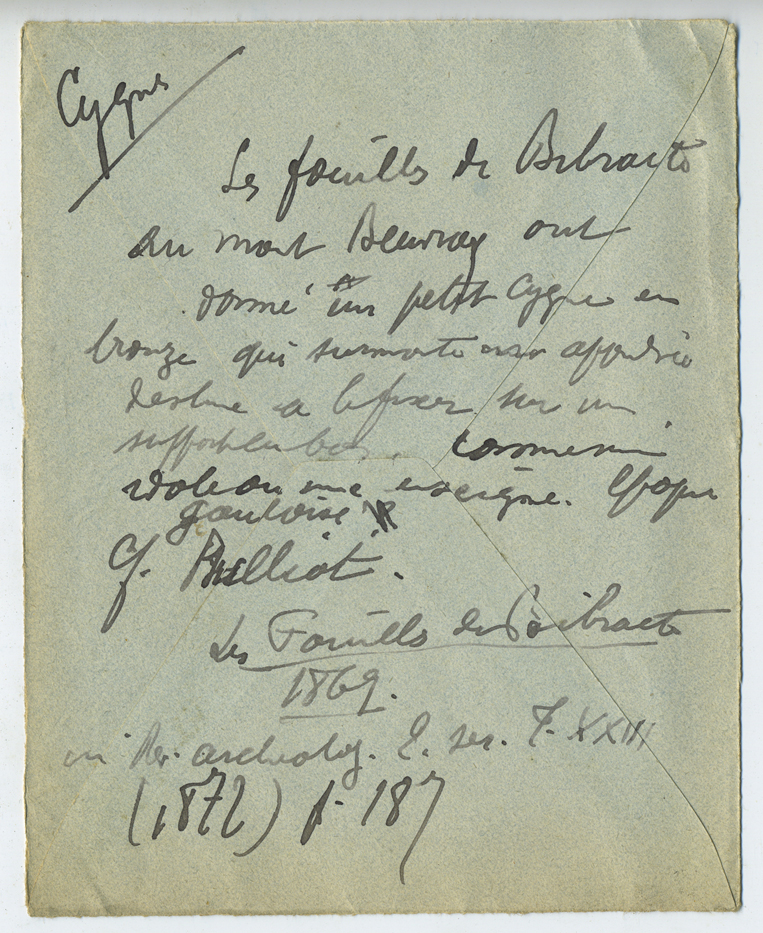 Cygne
Les fouilles de Bibracte
au mont Beuvray ont
donné un petit Cygne en
bronze qui surmonte un appendice
destiné a le fixer sur un
support en bois. comme un
une enseigne. Epoque
gauloise
Cf. Bulliot.
Les Fouilles de Bibracte
1869.
in Rev. archeolog. 2. ser. T. XXIII
(1872) p. 187